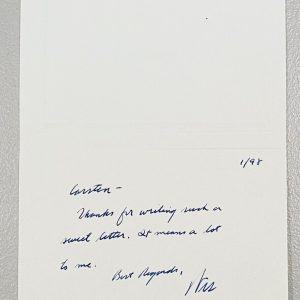 1/98
Carsten -
Thanks for writing such a
sweet letter. It means a lot
to me.
Best Regards,